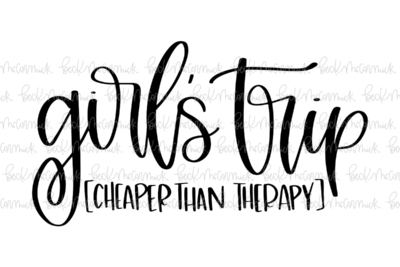 girl's trip
[CHEAPER THAN THERAPY]